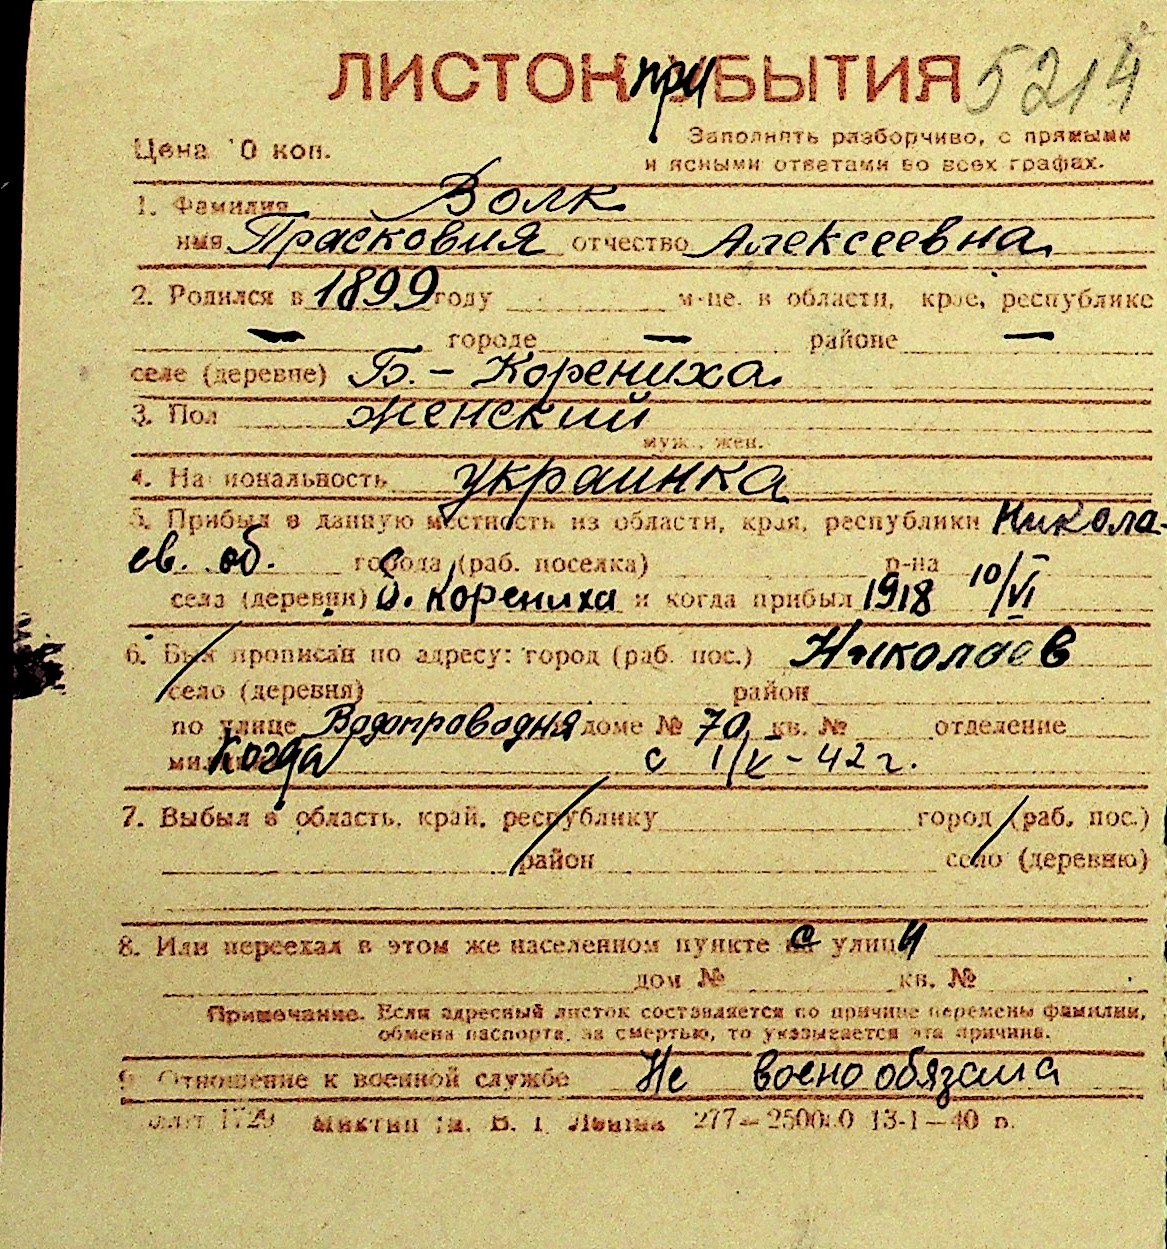 ЛИСТОК при БЫТИЯ 5214
Цена 10 коп.
Заполнять разборчиво, с прямыми
и ясными ответами во всех графах.
1. Фамилия Волк
имя Прасковия отчество Алексеевна
2. Родился в 1899 году м-це. в области, крае, республике
— городе — районе —
селе (деревне) Б. - Корениха.
3. Пол женский
муж., жен.
4. Национальность украинка
5. Прибыл в данную местность из области, края, республики Никола-
ев. об. города (раб. поселка) р-на
села (деревни) б. Корениха и когда прибыл 1918 10/VI
6. Был прописан по адресу: город (раб. пос.) Николаев
село (деревня) район
по улице Водопроводня доме № 70 кв. № отделение
Когда с 1/V - 42 г.
7. Выбыл в область, край, республику город (раб. пос.)
район село (деревню)
8. Или переехал в этом же населенном пункте с улици
дом № кв. №
Примечание. Если адресный листок составляется по причине перемены фамилии,
обмена паспорта, за смертью, то указывается эта причина.
9. Отношение к военной службе Не воено обязана
1729 В. Ленина 277—250000 13-1—40 р.